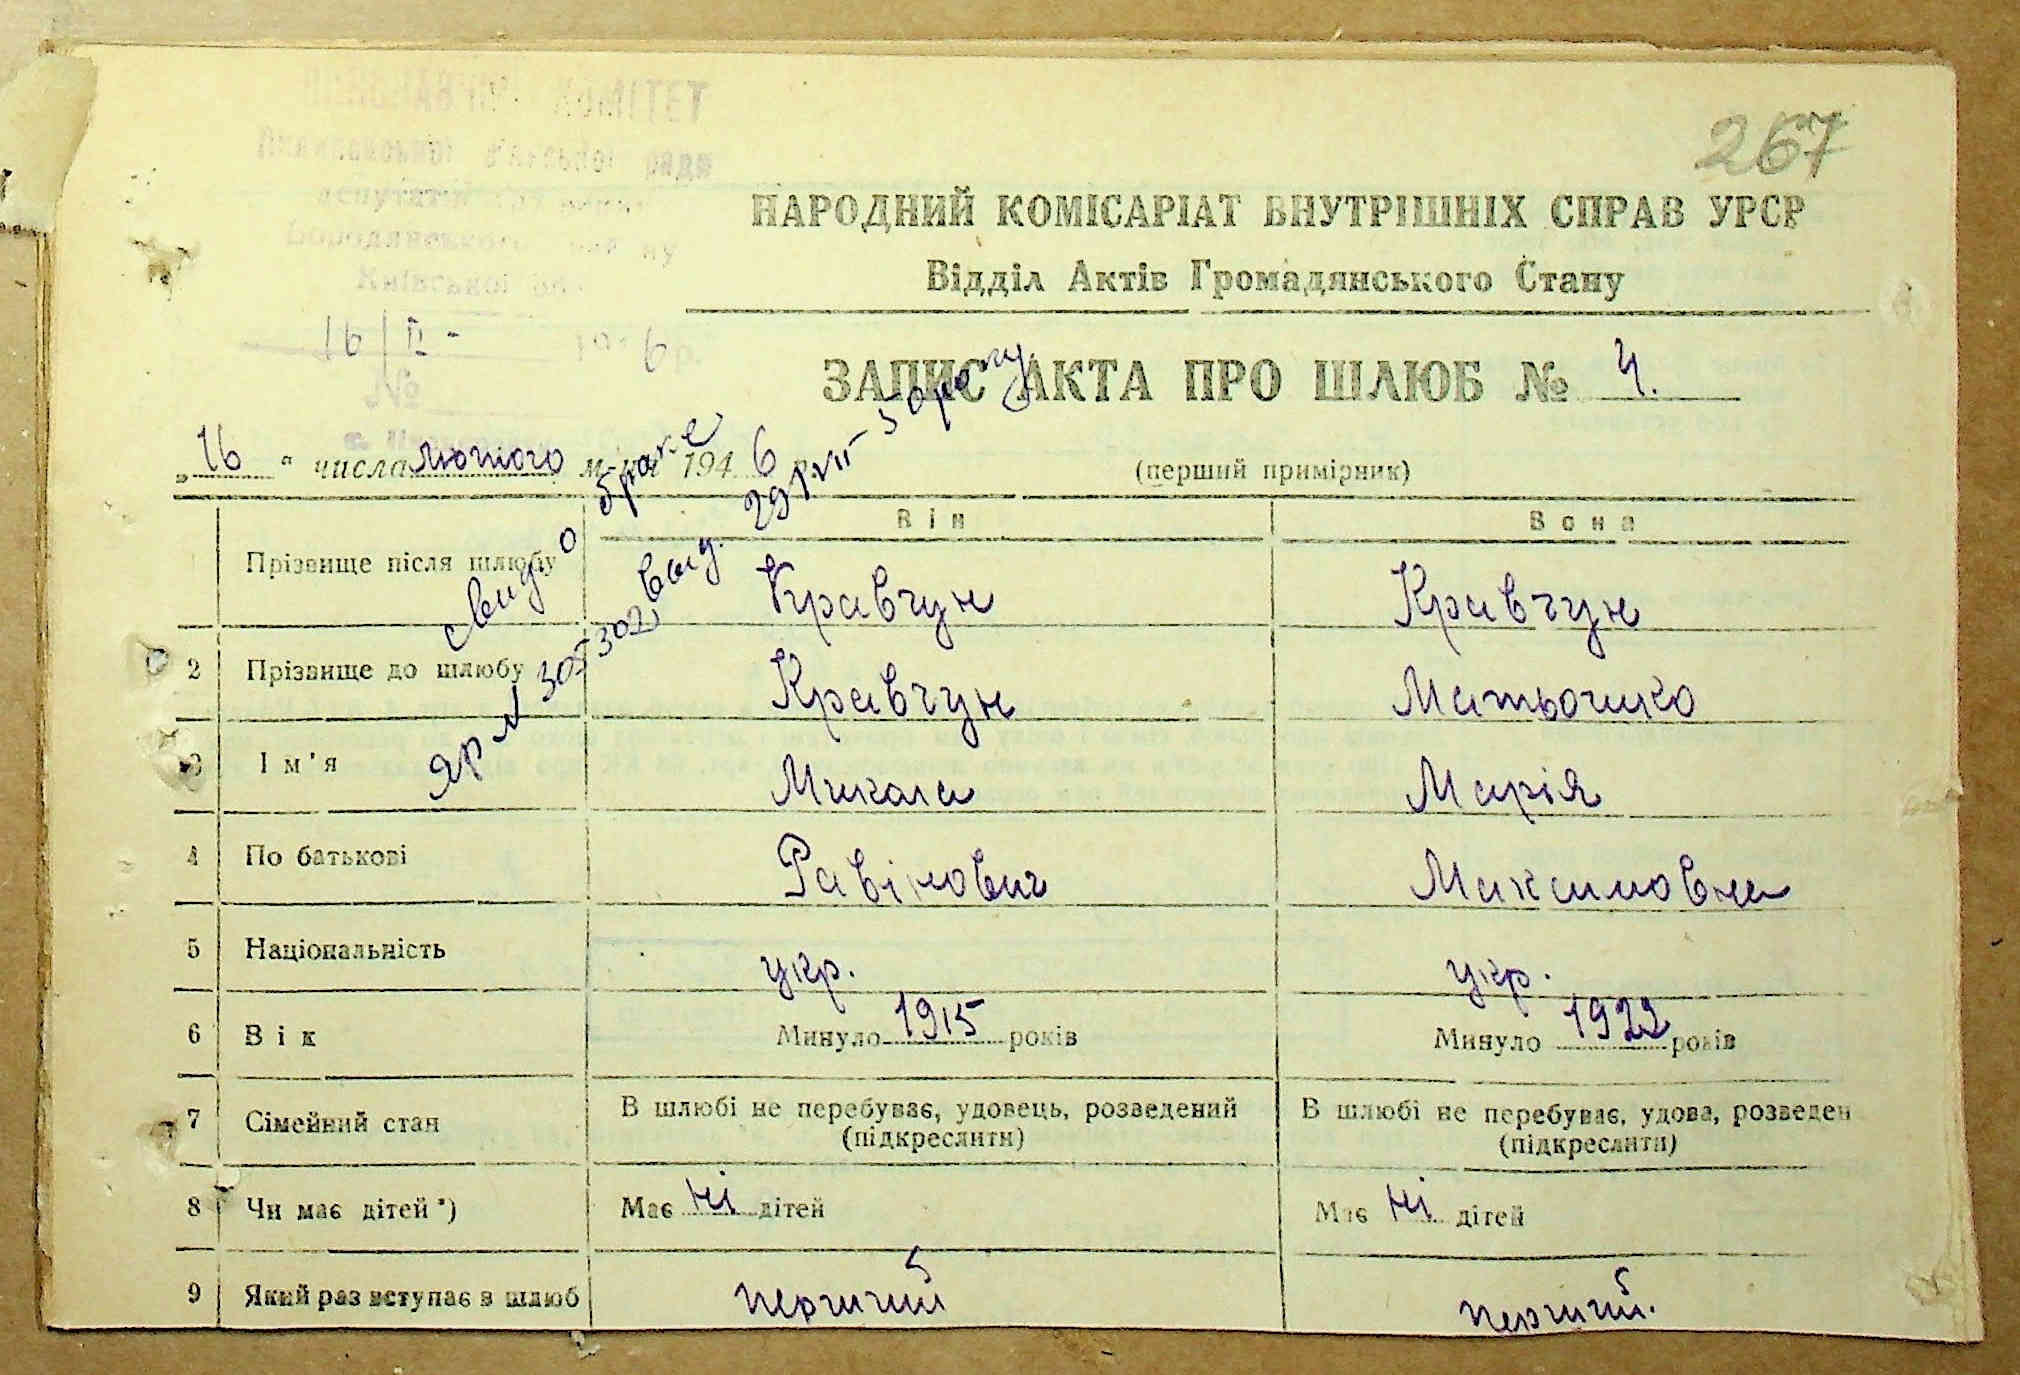 267
КОМІТЕТ
Київської
16/II- 6 р.
№
НАРОДНИЙ КОМІСАРІАТ ВНУТРІШНІХ СПРАВ УРСР
Відділ Актів Громадянського Стану
ЗАПИС АКТА ПРО ШЛЮБ № 4.
„16“ числа лютого м-ця 1946 р.
(перший примірник)
свид о браке
ЯР № 302 выд. 29/VII
Він Вона
1 Прізвище після шлюбу Кравчун Кравчун
2 Прізвище до шлюбу Кравчун Матьошко
3 Ім'я Микола Марія
4 По батькові Максимовна
5 Національність укр. укр.
6 Вік Минуло 1915 років Минуло 1922 років
7 Сімейний стан В шлюбі не перебуває, удовець, розведений (підкреслити) В шлюбі не перебуває, удова, розведен (підкреслити)
8 Чи має дітей *) Має ні дітей Має ні дітей
9 Який раз вступає в шлюб перший перший.